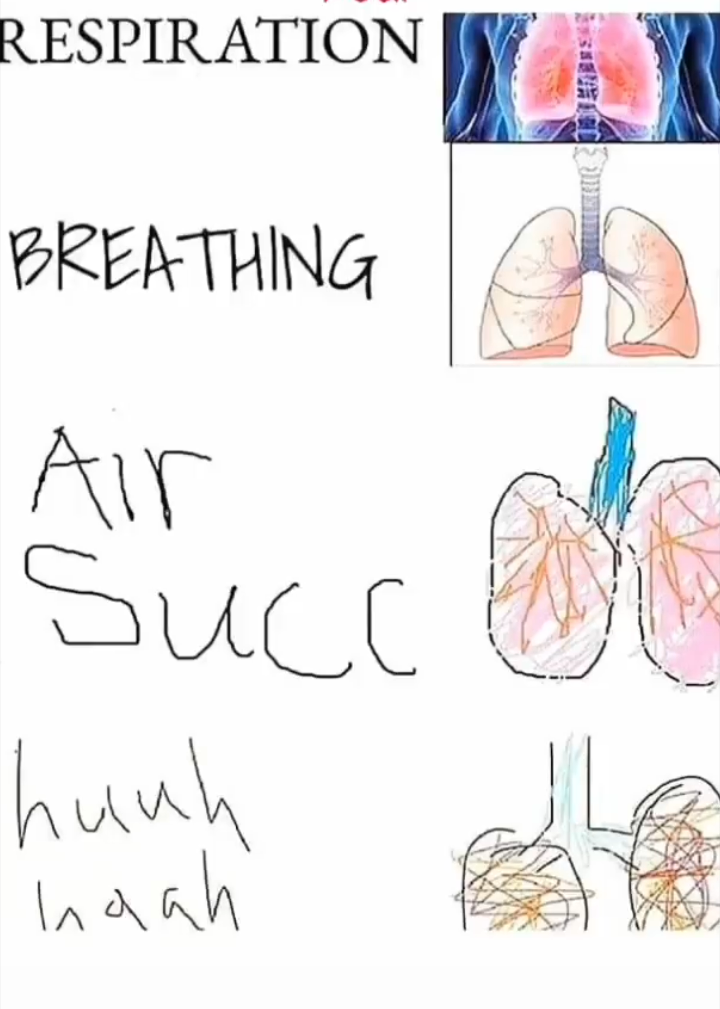 RESPIRATION
BREATHING
Air
Succ
huuh
haah